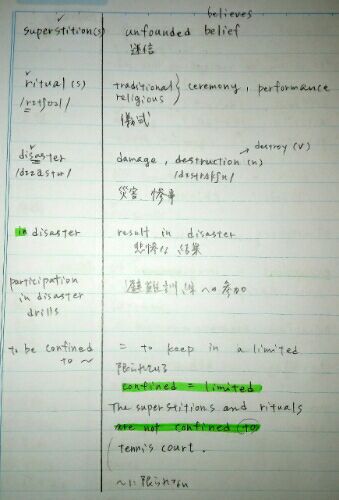 believes
superstition(s) unfounded belief
迷信
ritual(s) traditional } ceremony, performance
religious
儀式
destroy (v)
disaster damage, destruction (n)
/dɪzæstər/
災害 惨事
in disaster result in disaster
悲惨な 結果
participation 避難訓練への参加
in disaster
drills
to be confined = to keep in a limited
to ~
限られている
confined = limited
The superstitions and rituals
are not confined (to)
tennis court.
~に限られない